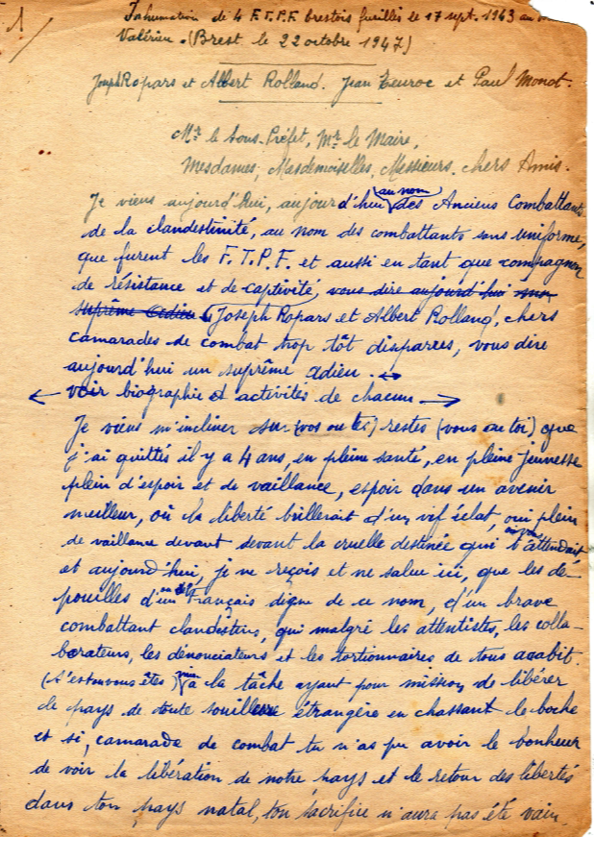 1
Inhumation de 4 F.T.P.F. brestois fusillés le 17 sept. 1943 au
Valérien. (Brest le 22 octobre 1947)
Joseph Ropars et Albert Rolland. Jean et Paul Monot.
Mr le Sous-Préfet, Mr le Maire,
Mesdames, Mesdemoiselles, Messieurs, chers Amis.
Je viens aujourd'hui, aujourd'hui au nom des Anciens Combattants
de la clandestinité, au nom des combattants sans uniforme,
que furent les F.T.P.F. et aussi en tant que compagnon
de résistance et de captivité, vous dire aujourd'hui mon
suprême adieu Joseph Ropars et Albert Rolland, chers
camarades de combat trop tôt disparus, vous dire
aujourd'hui un suprême adieu.
voir biographie et activités de chacun
Je viens m'incliner sur (vos ou tes) restes (vous ou toi) que
j'ai quittés il y a 4 ans, en pleine santé, en pleine jeunesse
plein d'espoir et de vaillance, espoir dans un avenir
meilleur, où la liberté brillerait d'un vif éclat, oui plein
de vaillance devant devant la cruelle destinée qui t'attendait
et aujourd'hui, je ne reçois et ne salue ici, que les dé-
pouilles d'un Français digne de ce nom, d'un brave
combattant clandestin, qui malgré les attentistes, les colla-
borateurs, les dénonciateurs et les tortionnaires de tous acabit.
(s'est ou vous êtes) mis à la tâche ayant pour mission de libérer
le pays de toute souillure étrangère en chassant le boche
et si, camarade de combat tu n'as pu avoir le bonheur
de voir la libération de notre pays et le retour des libertés
dans ton pays natal, ton sacrifice n'aura pas été vain.